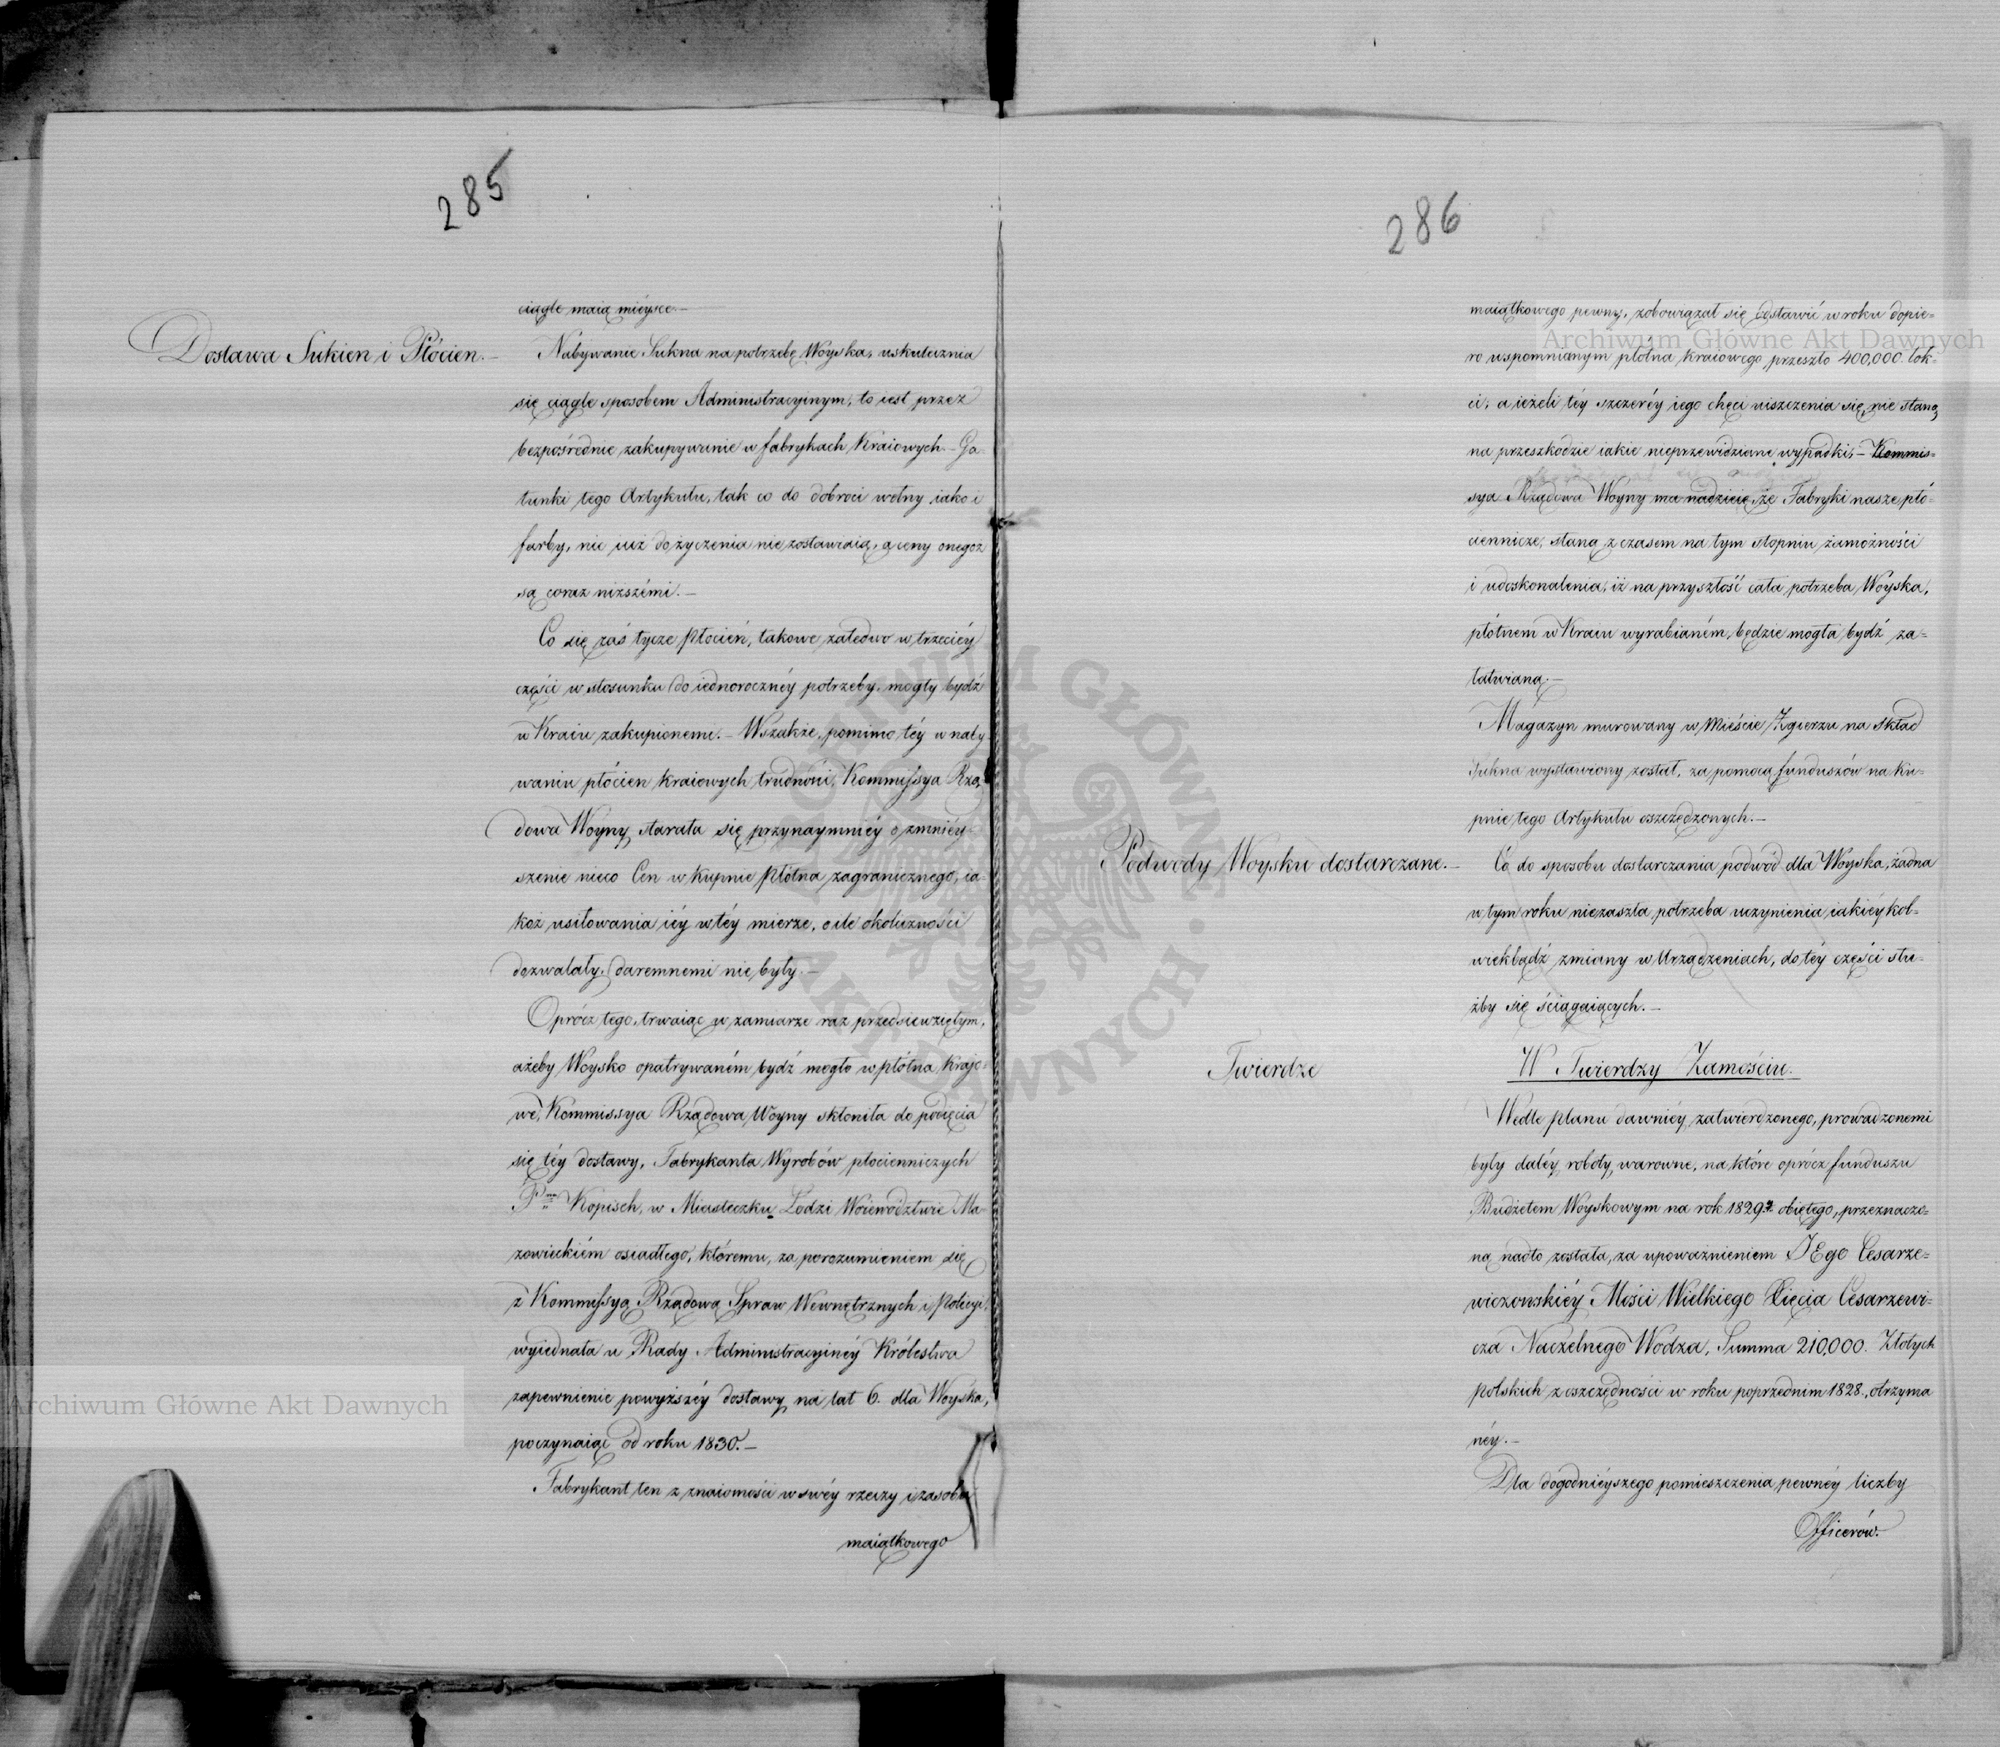 285
ciągle maią mieysce.—
Dostawa Sukien i Płócien.—
Nabywanie Sukna na potrzebę Woyska, uskutecznia
się ciągle sposobem Administracyinym, to iest przez
bezpośrednie zakupywanie w fabrykach Kraiowych.— Ga-
tunki tego Artykułu, tak co do dobroci wełny iako i
farby, nic iuż do życzenia nie zostawiaią, a ceny onegoż
są coraz niższémi.—
Co się zaś tycze Płócień, takowe zaledwo w trzeciéy
części w stosunku do iednorocznéy potrzeby, mogły bydź
w Kraiu zakupionemi.— Wszakże, pomimo téy w naby-
waniu płócien kraiowych trudności, Kommissya Rzą-
dowa Woyny, starała się przynaymniéy o zmniéy-
szenie nieco Cen w kupnie płótna zagranicznego, ia-
koż usiłowania iéy w téy mierze, o ile okoliczności
dozwalały, daremnemi nie były.—
Oprócz tego, trwaiąc w zamiarze raz przedsiewziętym,
ażeby Woysko opatrywaném bydź mogło w płótna krajo-
we, Kommissya Rządowa Woyny skłoniła do podięcia
się téy dostawy, Fabrykanta Wyrobów płócienniczych
Pna Kopisch, w Miasteczku Łodzi Woiewództwie Ma-
zowieckiém osiadłego, któremu, za porozumieniem się
z Kommissyą Rządową Spraw Wewnętrznych i Policyi,
wyiednała u Rady Administracyinéy Królestwa
zapewnienie powyższéy dostawy na lat 6. dla Woyska,
poczynaiąc od roku 1830.—
Fabrykant ten z znaiomości w swéy rzeczy i zasobu
maiątkowego
286
maiątkowego pewny, zobowiązał się dostawić w roku dopie-
ro wspomnianym płótna kraiowego przeszło 400,000. łok-
ci; a ieżeli téy szczeréy iego chęci uiszczenia się, nie staną
na przeszkodzie iakie nieprzewidziane wypadki,— Kommis-
sya Rządowa Woyny ma nadzieię, że Fabryki nasze płó-
ciennicze, staną z czasem na tym stopniu zamożności
i udoskonalenia, iż na przyszłość cała potrzeba Woyska,
płótnem w Kraiu wyrabianém, będzie mogła bydź za-
łatwianą.—
Magazyn murowany w Mieście Zgierzu na skład
Sukna wystawiony został, za pomocą funduszów na ku-
pnie tego Artykułu oszczędzonych.—
Podwody Woysku dostarczane.—
Co do sposobu dostarczania podwód dla Woyska, żadna
w tym roku nie zaszła potrzeba uczynienia iakieykol-
wiekbądź zmiany w Urządzeniach, do téy części słu-
żby się ściągaiących.—
Twierdze
W Twierdzy Zamościu.
Wedle planu dawniéy zatwierdzonego, prowadzonemi
były daléy roboty warowne, na które oprócz funduszu
Budżetem Woyskowym na rok 1829. obiętego, przeznaczo-
ną nadto została, za upoważnieniem JEgo Cesarze-
wiczowskiéy Mości Wielkiego Xięcia Cesarzewi-
cza Naczelnego Wodza, Summa 210,000. Złotych
Polskich z oszczędności w roku poprzednim 1828., otrzyma
néy.—
Dla dogodnieyszego pomieszczenia pewnéy liczby
Officerów.
Archiwum Główne Akt Dawnych
Archiwum Główne Akt Dawnych
ARCHIWUM GŁÓWNE AKT DAWNYCH